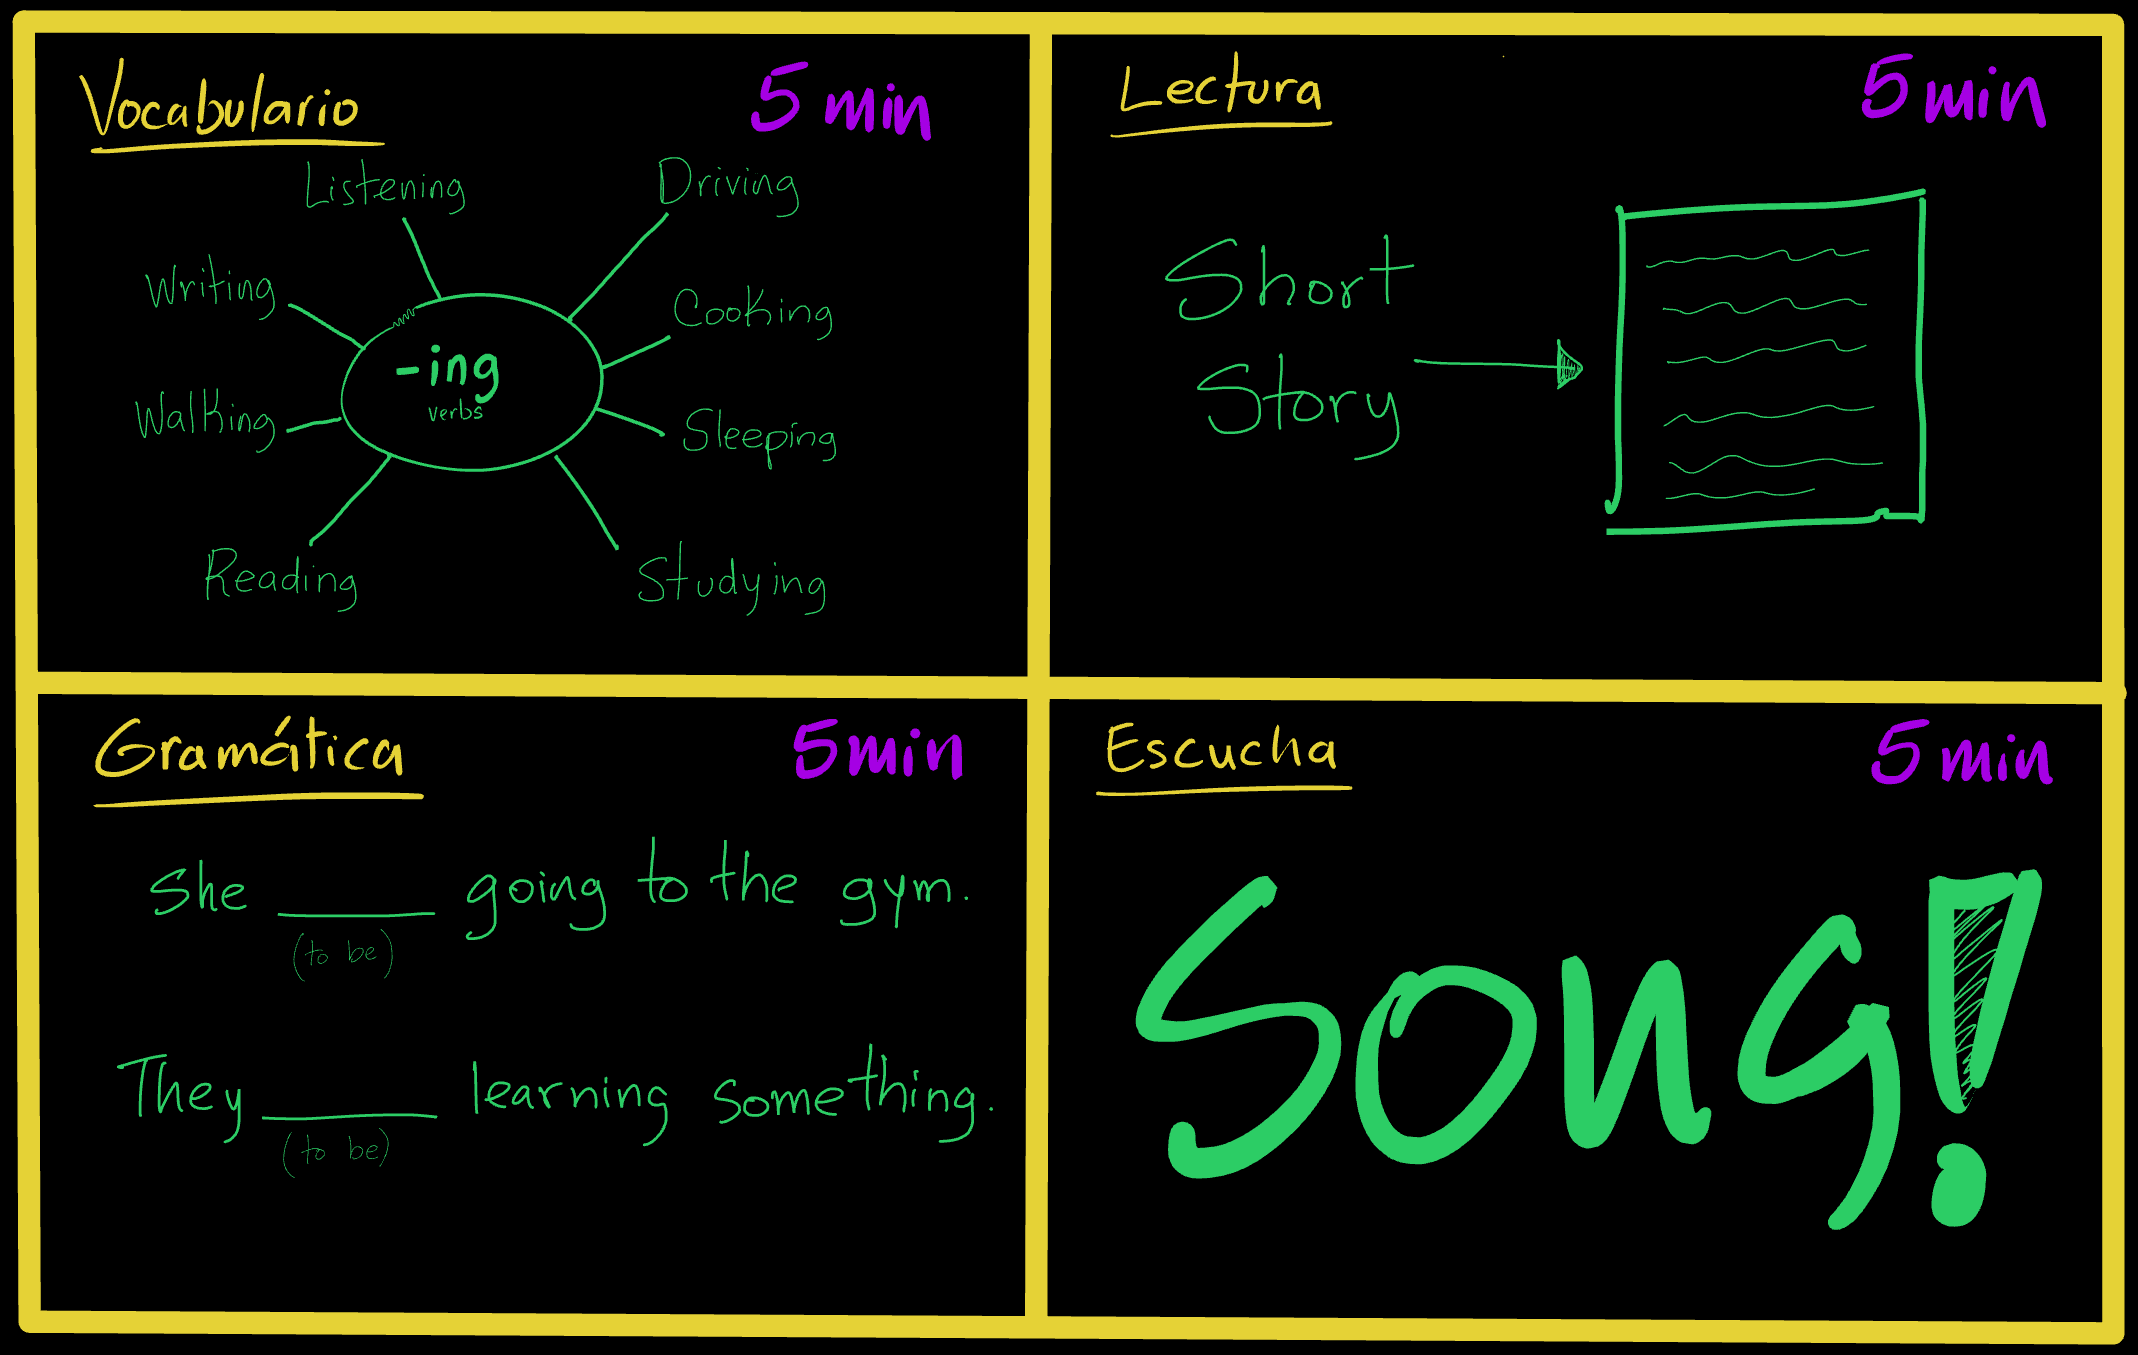 Vocabulario
5 min
Listening
Driving
Writing
Cooking
-ing
verbs
Walking
Sleeping
Reading
Studying
Lectura
5 min
Short
Story
Gramática
5 min
She ________ going to the gym.
(to be)
They ________ learning something.
(to be)
Escucha
5 min
Song!